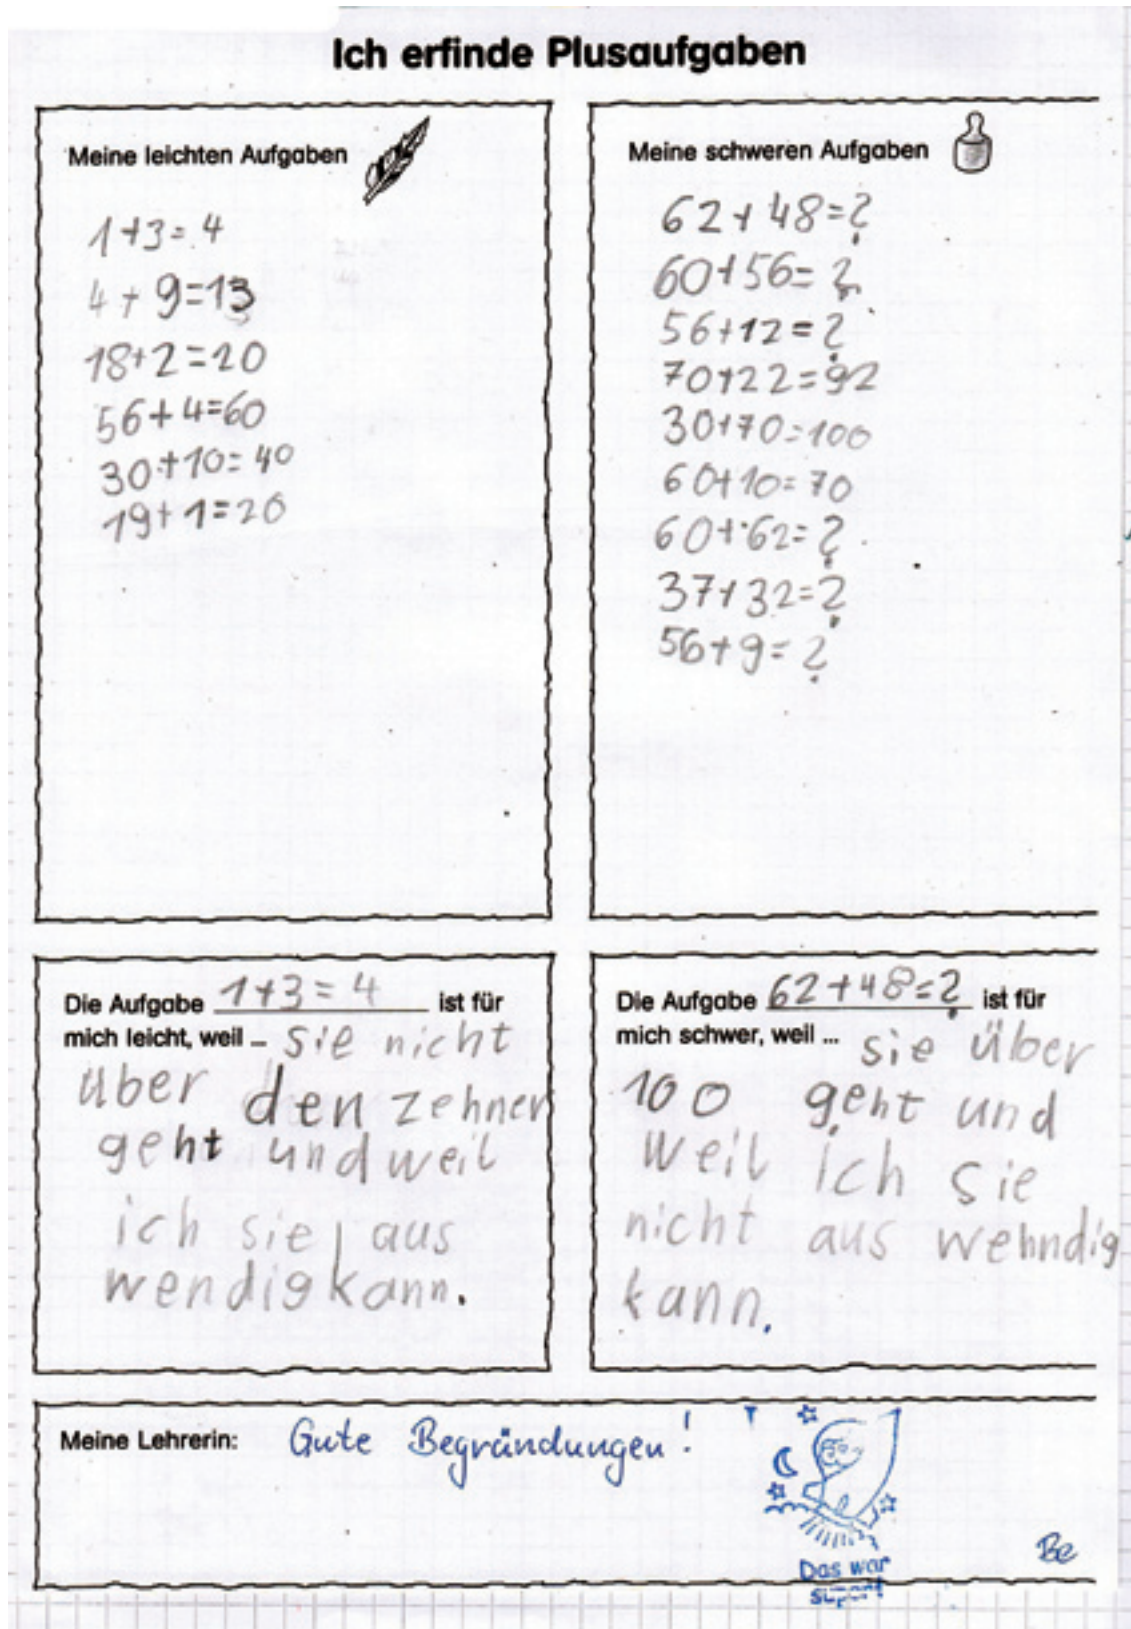 Ich erfinde Plusaufgaben
Meine leichten Aufgaben
1+3=4
4+9=13
18+2=20
56+4=60
30+10=40
19+1=20
Meine schweren Aufgaben
62+48=?
60+56=?
56+12=?
70+22=92
30+70=100
60+10=70
60+62=?
37+32=?
56+9=?
Die Aufgabe 1+3=4 ist für
mich leicht, weil ... sie nicht
über den zehner
geht und weil
ich sie aus
wendig kann.
Die Aufgabe 62+48=? ist für
mich schwer, weil ... sie über
100 geht und
weil ich sie
nicht aus wehndig
kann.
Meine Lehrerin: Gute Begründungen!
Das war
Be